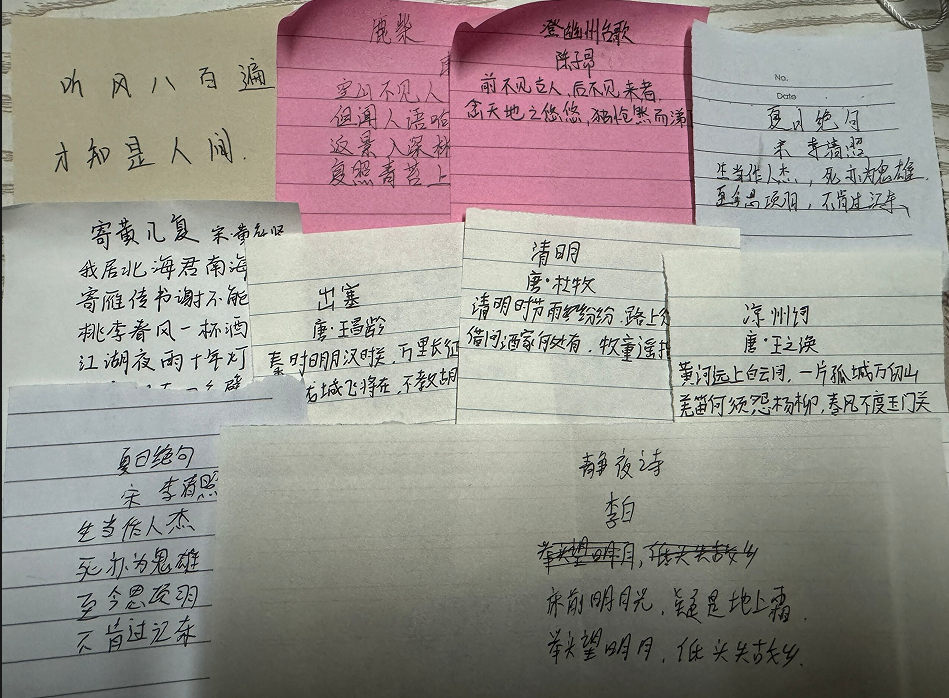 听风八百遍
才知是人间.
鹿柴
空山不见人
但闻人语响
返景入深林
复照青苔上
登幽州台歌
陈子昂
前不见古人,后不见来者,
念天地之悠悠,独怆然而涕
No.
Date
夏日绝句
宋 李清照
生当作人杰,死亦为鬼雄.
至今思项羽,不肯过江东、
寄黄几复 宋·黄庭坚
我居北海君南海
寄雁传书谢不能
桃李春风一杯酒
江湖夜雨十年灯
出塞
唐·王昌龄
秦时明月汉时关,万里长征
龙城飞将在,不教胡
清明
唐·杜牧
清明时节雨纷纷 路上
借问酒家何处有,牧童遥指
凉州词
唐·王之涣
黄河远上白云间,一片孤城万仞山
羌笛何须怨杨柳,春风不度玉门关
夏日绝句
宋 李清照
生当作人杰
死亦为鬼雄
至今思项羽
不肯过江东
静夜诗
李白
举头望明月,低头失故乡
床前明月光,疑是地上霜.
举头望明月,低头失故乡.